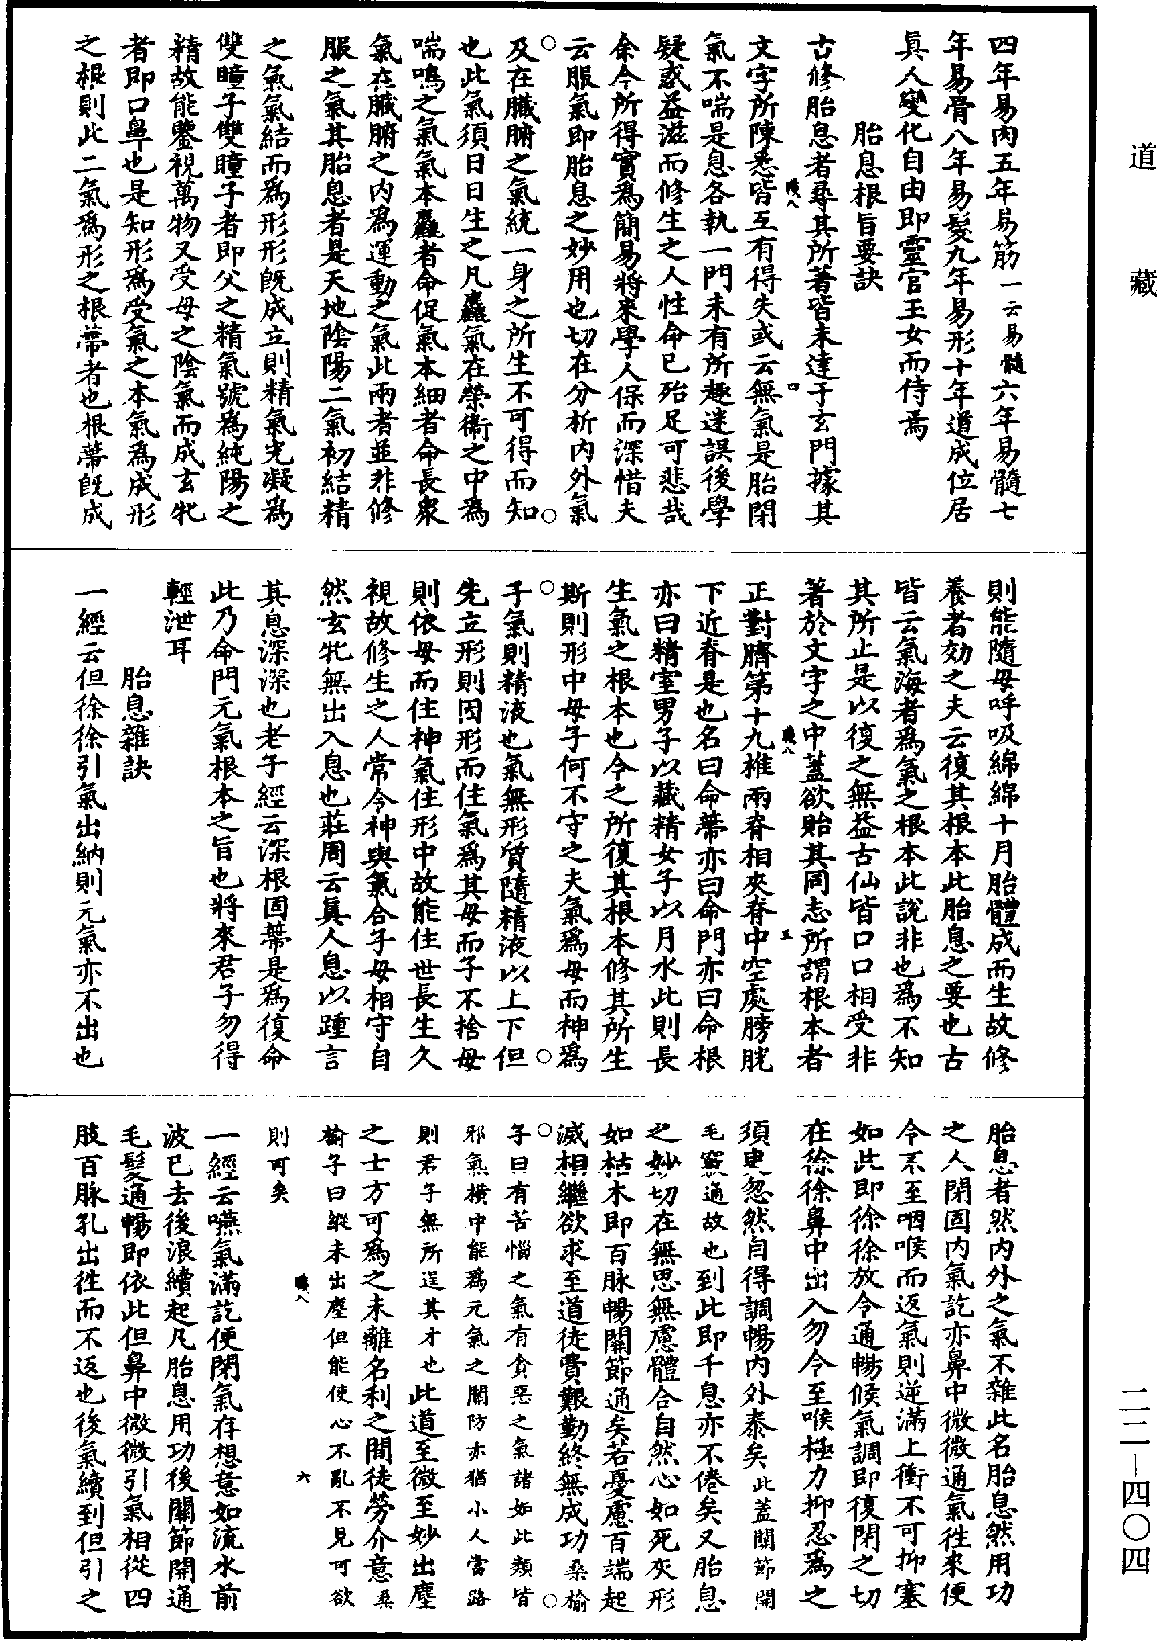 道藏
四年易肉五年易筋一云易髓六年易髓七
年易骨八年易髮九年易形十年道成位居
眞人變化自由即靈官玉女而侍焉
胎息根旨要訣
古修胎息者尋其所著皆未達于玄門據其
文字所陳悉皆互有得失或云無氣是胎閉
氣不喘是息各執一門未有所趣迷誤後學
疑惑益滋而修生之人性命已殆足可悲哉
余今所得實爲簡易將來學人保而深惜夫
云服氣即胎息之妙用也切在分析內外氣
及在臟腑之氣統一身之所生不可得而知
也此氣須日日生之凡麤氣在榮衞之中爲
喘鳴之氣氣本麤者命促氣本細者命長衆
氣在臟腑之內爲運動之氣此兩者並非修
服之氣其胎息者是天地陰陽二氣初結精
之氣氣結而爲形形旣成立則精氣光凝爲
雙瞳子雙瞳子者即父之精氣號爲純陽之
精故能鑒視萬物又受母之陰氣而成玄牝
者即口鼻也是知形爲受氣之本氣爲成形
之根則此二氣爲形之根蔕者也根蔕旣成
則能隨母呼吸綿綿十月胎體成而生故修
養者効之夫云復其根本此胎息之要也古
皆云氣海者爲氣之根本此說非也爲不知
其所止是以復之無益古仙皆口口相受非
著於文字之中蓋欲貽其同志所謂根本者
正對臍第十九椎兩脊相夾脊中空處膀胱
下近脊是也名曰命蔕亦曰命門亦曰命根
亦曰精室男子以藏精女子以月水此則長
生氣之根本也今之所復其根本修其所生
斯則形中母子何不守之夫氣爲母而神爲
子氣則精液也氣無形質隨精液以上下但
先立形則因形而住氣爲其母而子不捨母
則依母而住神氣住形中故能住世長生久
視故修生之人常令神與氣合子母相守自
然玄牝無出入息也莊周云眞人息以踵言
其息深深也老子經云深根固蔕是爲復命
此乃命門元氣根本之旨也將來君子勿得
輕泄耳
胎息雜訣
一經云但徐徐引氣出納則元氣亦不出也
胎息者然內外之氣不雜此名胎息然用功
之人閉固內氣訖亦鼻中微微通氣往來便
令不至咽喉而返氣則逆滿上衝不可抑塞
如此即徐徐放令通暢候氣調即復閉之切
在徐徐鼻中出入勿令至喉極力抑忍爲之
須臾忽然自得調暢內外泰矣此蓋關節開
毛竅通故也到此即千息亦不倦矣又胎息
之妙切在無思無慮體合自然心如死灰形
如枯木即百脉暢關節通矣若憂慮百端起
滅相繼欲求至道徒費艱勤終無成功桑榆
子曰有苦惱之氣有貪惡之氣諸如此類皆
邪氣橫中能爲元氣之關防亦猶小人當路
則君子無所逞其才也此道至微至妙出塵
之士方可爲之未離名利之間徒勞介意桑
榆子曰縱未出塵但能使心不亂不見可欲
則可矣
一經云嚥氣滿訖便閉氣存想意如流水前
波已去後浪續起凡胎息用功後關節開通
毛髮通暢即依此但鼻中微微引氣相從四
肢百脉孔出徃而不返也後氣續到但引之
二二—四〇四